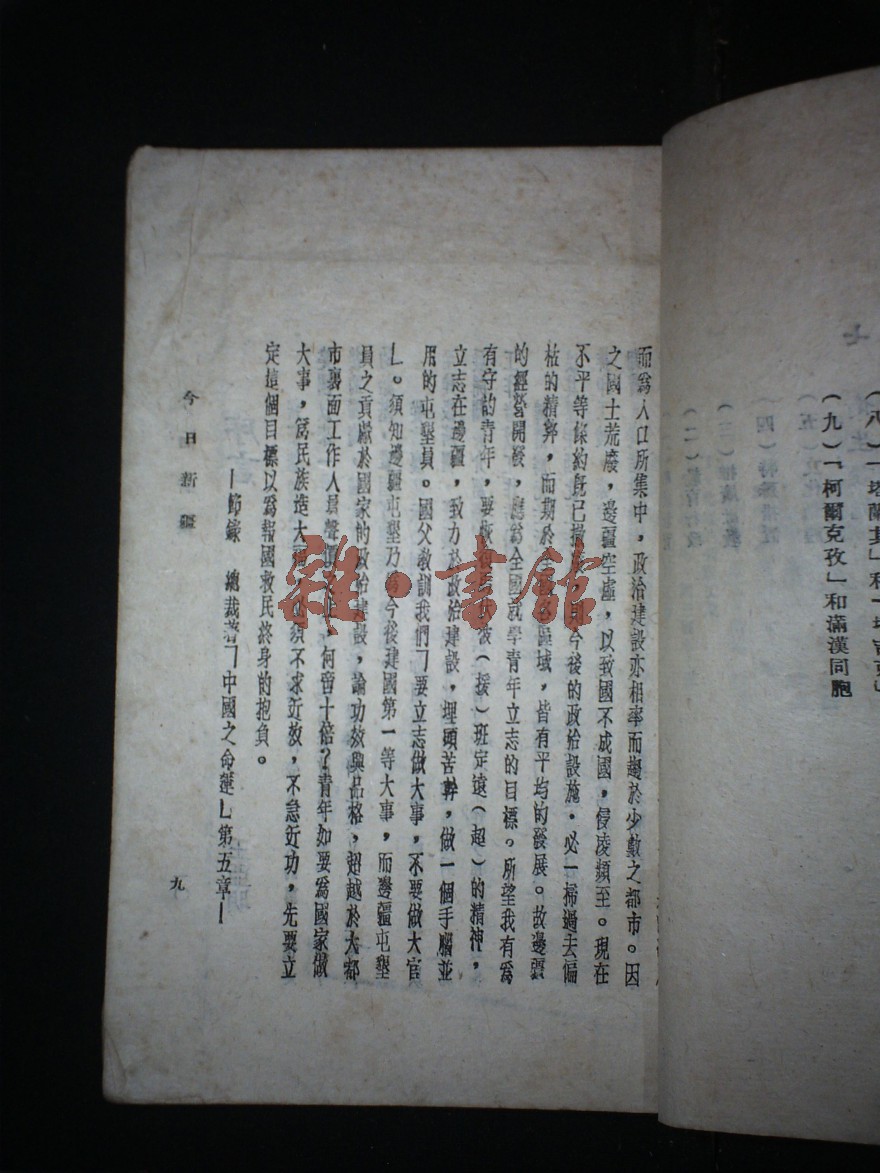 (九)「柯爾克孜」和滿漢同胞
而爲人口所集中，政治建設亦相率而趨於少數之都市。因
之國土荒廢，邊疆空虛，以致國不成國，侵凌頻至。現在
不平等條約既已撤廢，則今後的政治設施。必一掃過去偏
枯的精弊，而期於全國各區域，皆有平均的發展。故邊疆
的經營開發，應爲全國就學青年立志的目標。所望我有爲
有守的青年，要做馬伏波(援)班定遠(超)的精神，
立志在邊疆，致力於政治建設，埋頭苦幹，做一個手腦並
用的屯墾員。國父教訓我們「要立志做大事，不要做大官
」。須知邊疆屯墾乃爲今後建國第一等大事，而邊疆屯墾
員之貢獻於國家的政治建設，論功效與品格，超越於大都
市裏面工作人員聲價之上，何啻十倍？青年如要爲國家做
大事，爲民族造大福，必須不求近效，不急近功，先要立
定這個目標以爲報國救民終身的抱負。
—節錄 總裁著「中國之命運」第五章—
今日新疆
九
雜·書館